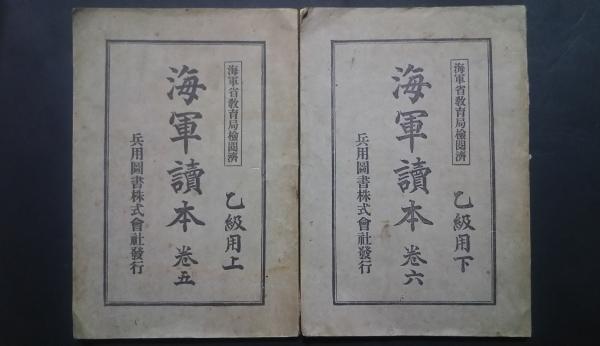 海軍省教育局檢閲濟
乙級用上
海軍讀本 卷五
兵用圖書株式會社發行
海軍省教育局檢閲濟
乙級用下
海軍讀本 卷六
兵用圖書株式會社發行